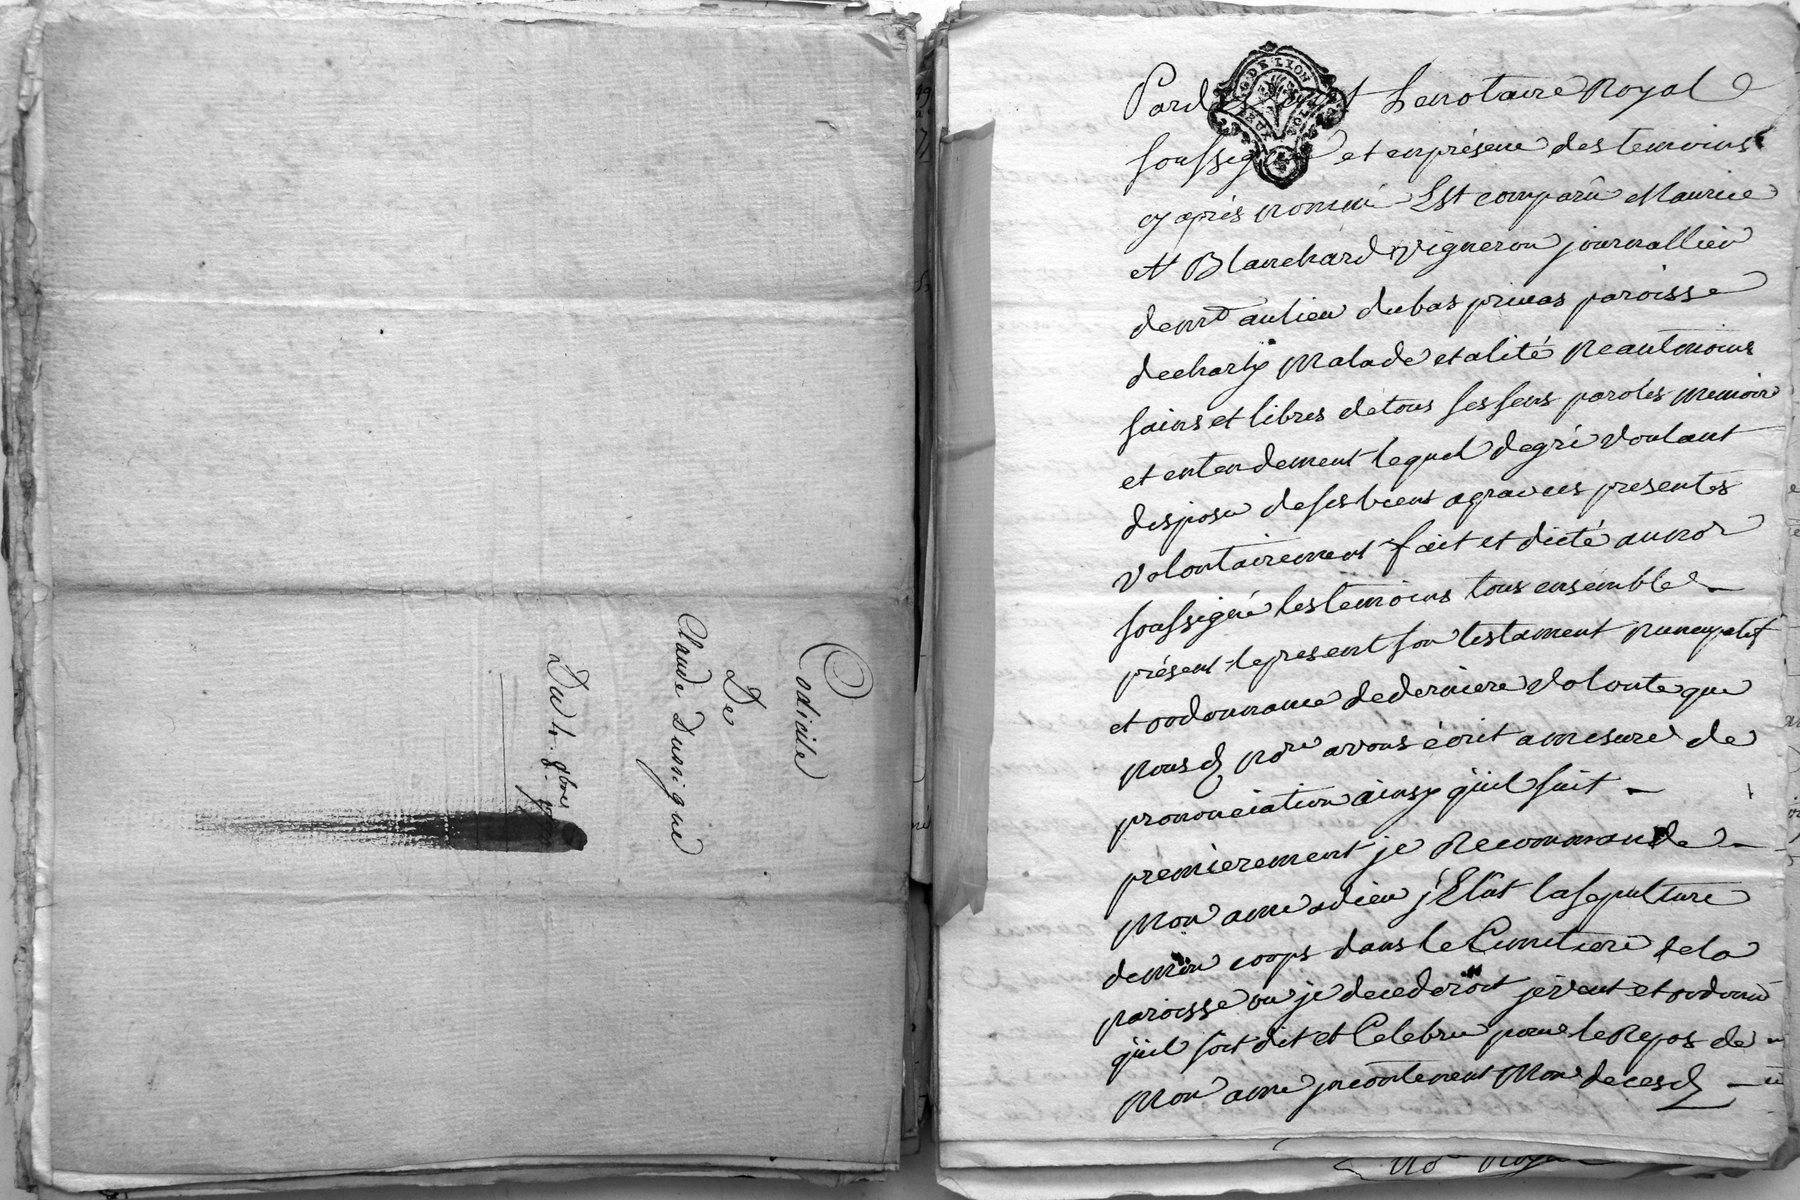 Codicile
De
Claude Dussigne
Du 1r. 9bre
G. DE LYON
DEUX SOLS
Pardevant Lenotaire Royal
soussigné et enprésence des temoins
cy après nommé Est comparû Maurice
et Blanchard vigneron journallier
demt aulieu dubas privas paroisse
decharly Malade et alité Neantmoins
sains et libres detous ses sens paroles memoire
et entendement lequel degré voulant
disposer desesbiens agravees presentes
volontairement fait et dicté aunor
soussigné lestemoins tous ensemble
présent lepresent son testament nuncupatif
et ordonnance dederniere volonté que
nousd nore avons écrit amesure de
prononciation ainsy quil suit
premierement je Recommande
Mon ame adieu j'Elût lasepulture
demon corps dans le Cimetiere dela
paroisse ou je decederoit je veut et ordonne
quil soit dit et Celebrer pour leRepos de
Mon ame incontinent Mon decesd